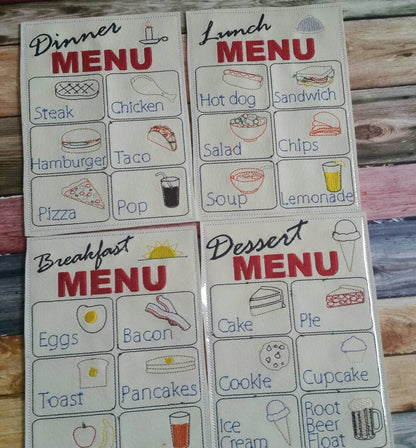 Dinner
MENU
Steak
Chicken
Hamburger
Taco
Pizza
Pop
Lunch
MENU
Hot dog
Sandwich
Salad
Chips
Soup
Lemonade
Breakfast
MENU
Eggs
Bacon
Toast
Pancakes
Dessert
MENU
Cake
Pie
Cookie
Cupcake
Ice
Cream
Root
Beer
Float